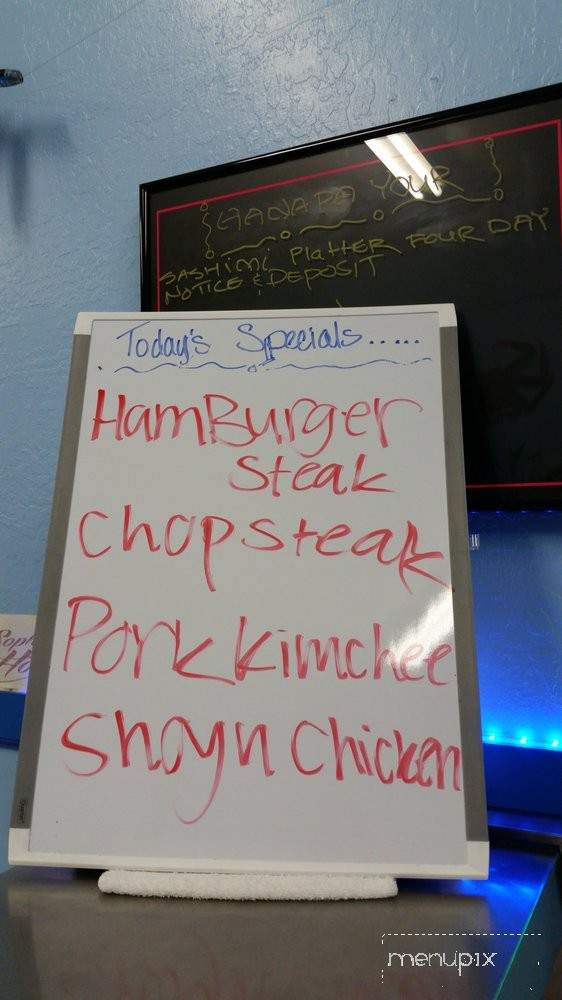 YOUR
SASHIMI PLATTER FOUR DAY
NOTICE & DEPOSIT
Today's Specials.....
HamBurger
Steak
Chopsteak
Pork kimchee
Shoyu Chicken
menupix